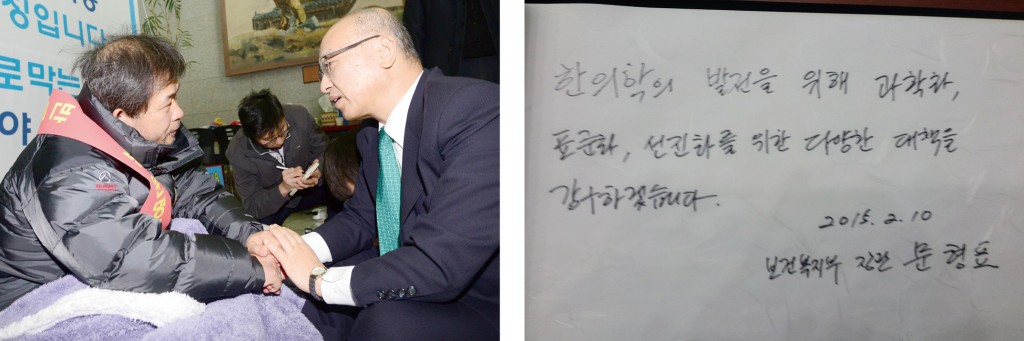 징입니다
로막는
야
한의학의 발전을 위해 과학화,
표준화, 선진화를 위한 다양한 대책을
강구하겠습니다.
2015. 2. 10
보건복지부 장관 문형표